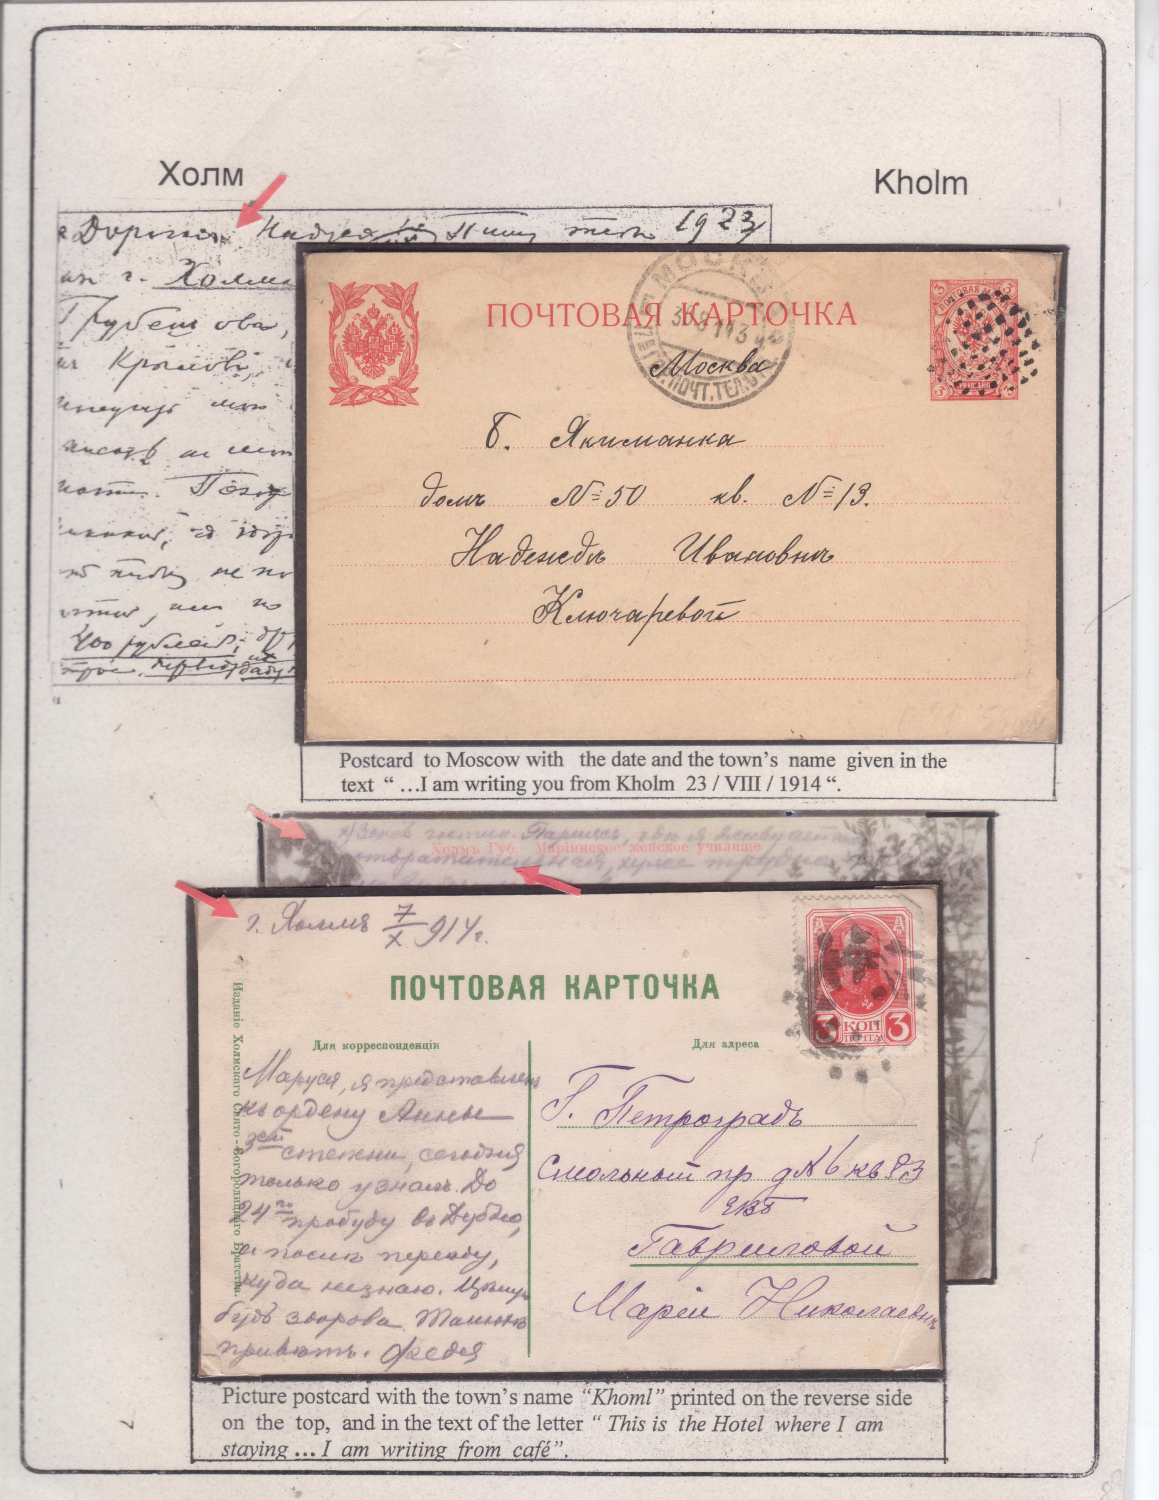 Холм
Kholm
Дорогая Надежда Пишу тебе 1923
г. Холма
Грубешова,
Крылов,
400 рублей,
МОСКВА
31.8.14
ПОЧТ.ТЕЛ.
ПОЧТОВАЯ КАРТОЧКА
3 ПОЧТОВАЯ МАРКА 3
Москва
Б. Якиманка
домъ №50 кв. №13.
Надеждѣ Ивановнѣ
Ключаревой
Postcard to Moscow with the date and the town's name given in the
text “ ...I am writing you from Kholm 23 / VIII / 1914 “.
Холмъ Губ. Маріинское женское училище
отвратительная, хуже трудно
г. Холмъ 7/X 914г.
ПОЧТОВАЯ КАРТОЧКА
3 КОП 3
ПОЧТА
Изданіе Холмскаго Свято-Богородицкаго Братства.
Для корреспонденціи
Для адреса
Маруся, я представленъ
къ ордену Анны
3ей степени, сегодня
только узналъ. До
24го пробуду въ Дубно,
а послѣ переѣду,
куда незнаю. Цѣлую
будь здорова.
привѣтъ. Федя
Г. Петроградъ
Смольный пр д№6 кв 83
ЕВБ
Гавриловой
Маріи Николаевнѣ
Picture postcard with the town's name “Khoml” printed on the reverse side
on the top, and in the text of the letter “ This is the Hotel where I am
staying ... I am writing from café”.